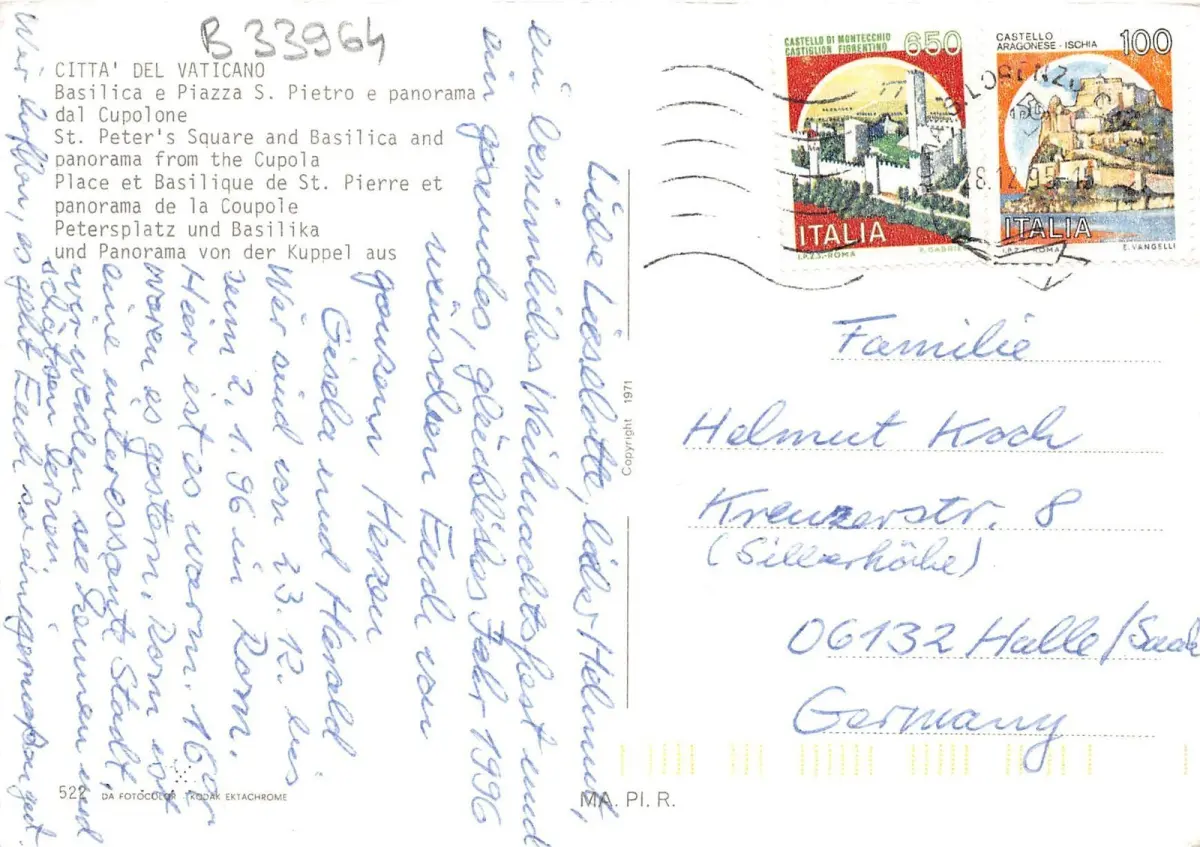 B 33964
CITTA' DEL VATICANO
Basilica e Piazza S. Pietro e panorama
dal Cupolone
St. Peter's Square and Basilica and
panorama from the Cupola
Place et Basilique de St. Pierre et
panorama de la Coupole
Petersplatz und Basilika
und Panorama von der Kuppel aus
Liebe Lieselotte, lieber Helmut,
ein besinnliches Weihnachtsfest und
ein gesundes, glückliches Jahr 1996
wünschen Euch von
ganzem Herzen
Gisela und Harald
Wir sind vom 23.12. bis
zum 2.1.96 in Rom.
Hier ist es warm. 16°
waren es gestern. Rom ist
eine interessante Stadt,
wir werden sie kennen und
schätzen lernen
Wir hoffen, es geht Euch so einigermaßen gut.
522 DA FOTOCOLOR KODAK EKTACHROME
Copyright 1971
MA. PI. R.
CASTELLO DI MONTECCHIO
CASTIGLION FIORENTINO
650
ITALIA
I.P.Z.S.-ROMA
CASTELLO
ARAGONESE - ISCHIA
100
ITALIA
I.P.Z.S. ROMA E. VANGELLI
S. LORENZO
28.12.95-15
Familie
Helmut Koch
Kreuzerstr. 8
(Silberhöhe)
06132 Halle/Saale
Germany